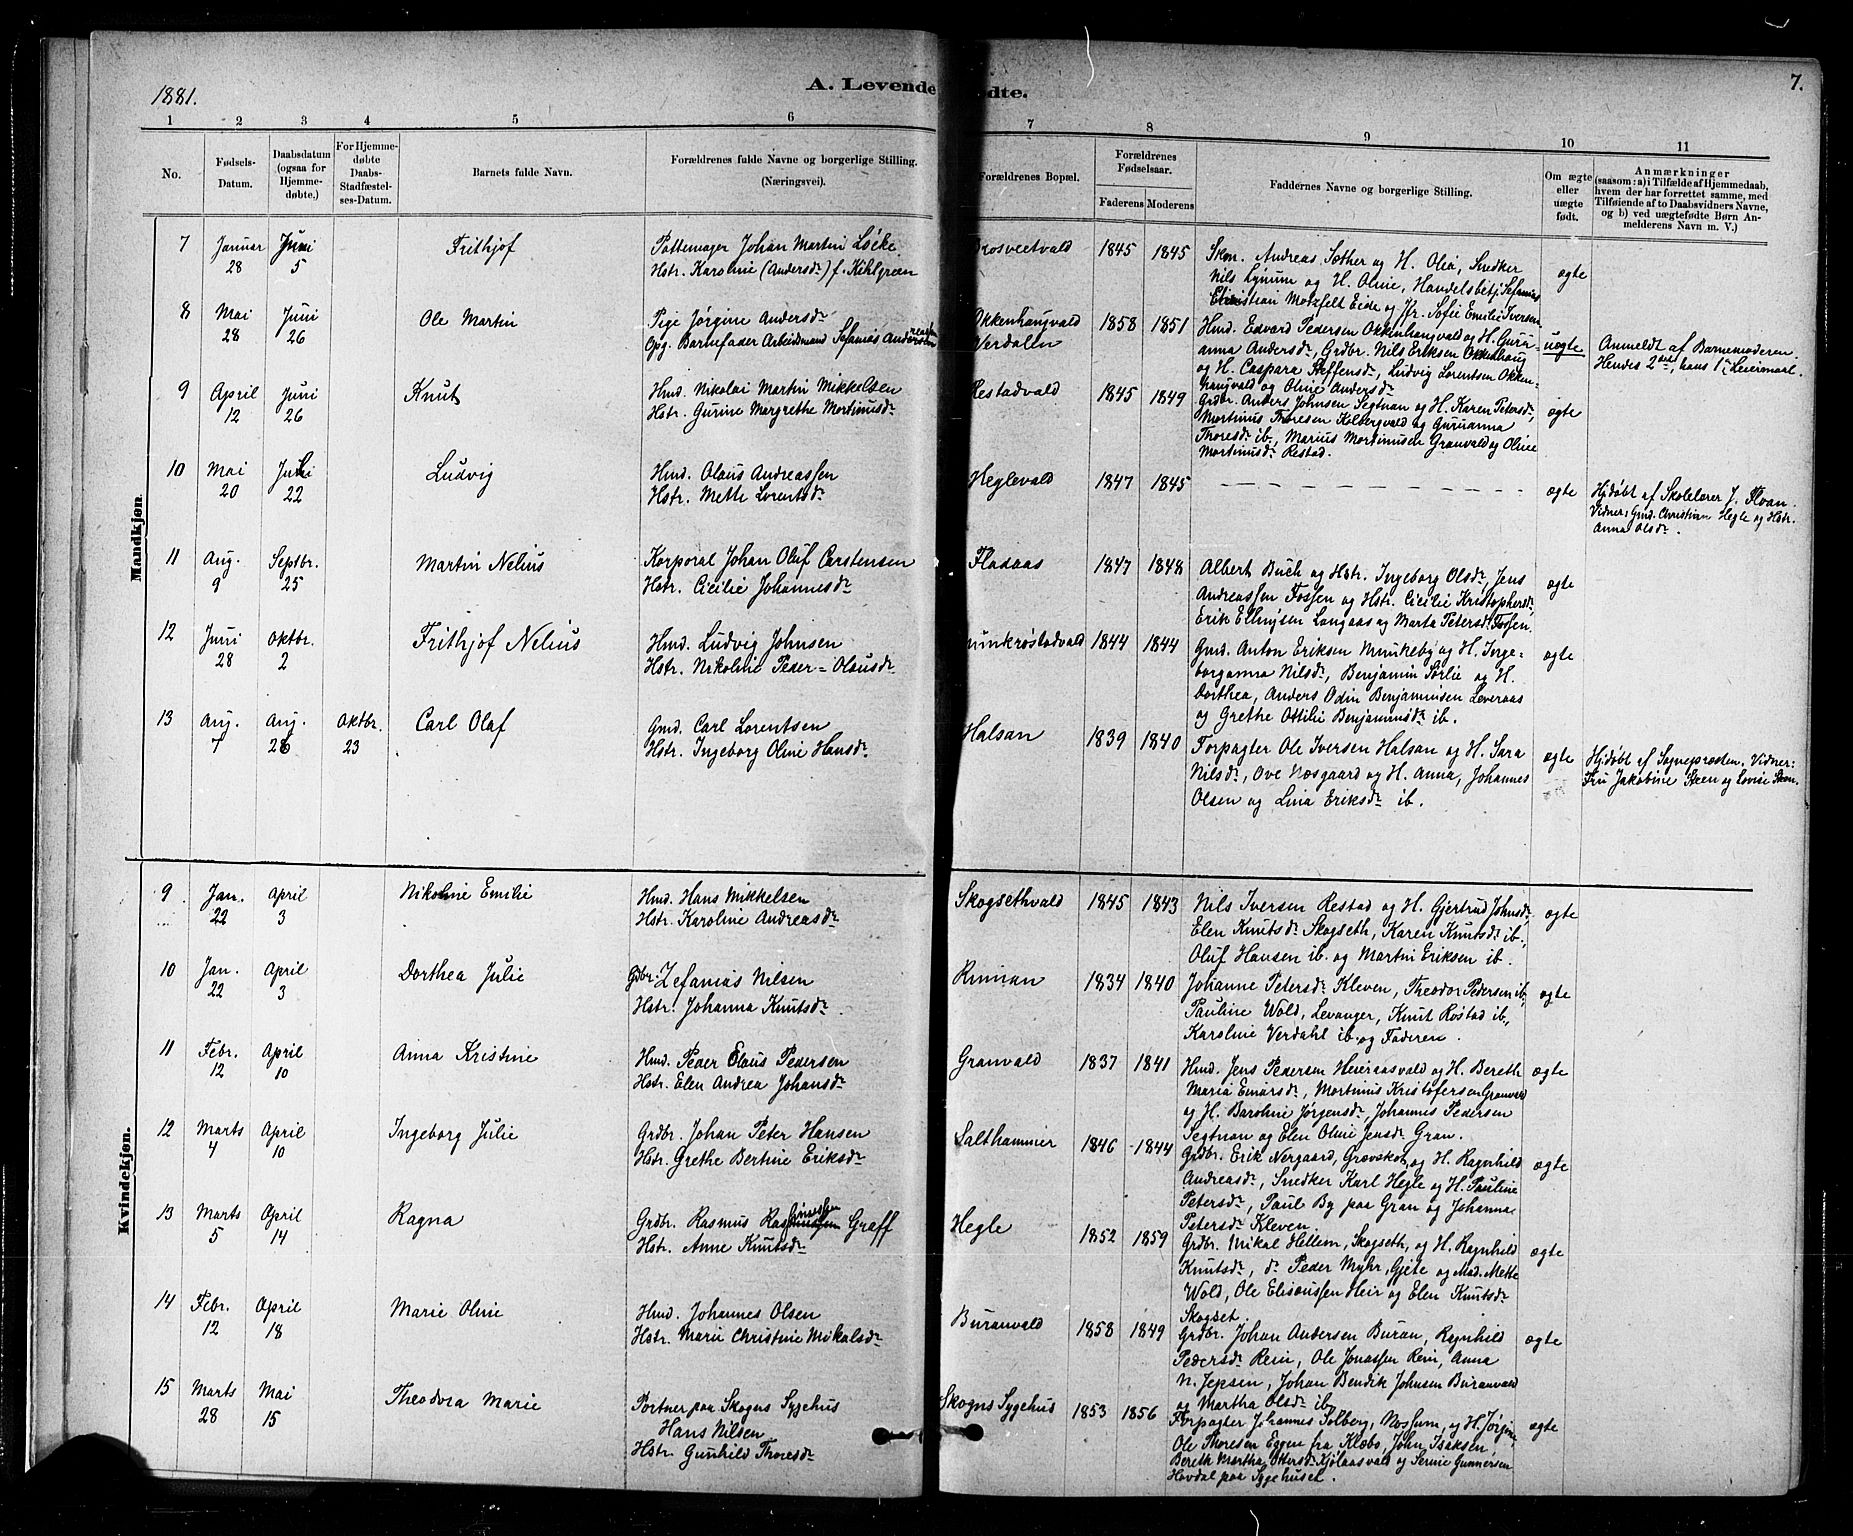 1881.
A. Levende
dte.
7.
1 2 3 4 5 6 7 8 9 10 11
No.
Fødsels-
Datum.
Daabsdatum
(ogsaa for
Hjemme-
døbte.)
For Hjemme-
døbte
Daabs-
Stadfæstel-
ses-Datum.
Barnets fulde Navn.
Forældrenes fulde Navne og borgerlige Stilling.
(Næringsvei).
Forældrenes Bopæl.
Forældrenes
Fødselsaar.
Faderens Moderens
Faddernes Navne og borgerlige Stilling.
Om ægte
eller
uægte
født.
Anmærkninger
(saasom: a) i Tilfælde af Hjemmedaab,
hvem der har forrettet samme, med
Tilføiende af to Daabsvidners Navne,
og b) ved uægtefødte Børn An-
melderens Navn m. V.)
Mandkjøn.
7 Januar 28 Juni 5 Frithjof
Pottemager Johan Martin Løcke
Hstr. Karoline (Andersdr) f. Kihlgreen
rosveetvald 1845 1845
Skom. Andreas Sæther og H. Olia, Snedker
Nils Lynum og H. Oline, Handelsbetj. Sefanias
Christian Motzfelt Eide og Jfr. Sofie Emilie Iversen
ægte
8 Mai 28 Juni 26 Ole Martin
Pige Jørgine Andersdr
Opg. Barnefader Arbeidsmand Sefanias Andersen
Okkenhaugvald
Verdalen
1858 1851
Hmd. Edvard Pedersen Okkenhaugvald og H. Guru-
anna Andersdr, Grdbr. Nils Eriksen Okkenhaug
og H. Caspara Steffensdr, Ludvig Lorentsen Okken-
haugvald og Oline Andersdr
uægte
Anmeldt af Barnemoderen.
Hendes 2det, hans 1ste Leiermaal.
9 April 12 Juni 26 Knut
Hmd. Nikolai Martin Mikkelsen
Hstr. Gurine Margrethe Mortinusdr
Restadvald 1845 1849
Grdbr. Anders Johnsen Segtnan og H. Karen Petersdr,
Mortinus Thoresen Kolbergvald og Guruanna
Thoresdr ib., Marius Mortinusen Granvald og Oline
Mortinusdr Restad.
ægte
10 Mai 20 Juli 22 Ludvig
Hmd. Olaus Andreassen
Hstr. Mette Lorentsdr
Heglevald 1847 1845
ægte
Hjdøbt af Skolelærer J. Floan.
Vidner: Gmd. Christian Hegle og Hstr.
Anna Olsdr.
11 Aug. 9 Septbr. 25 Martin Nelius
Korporal Johan Oluf Carstensen
Hstr. Cicilie Johannesdr
Fladaas 1847 1848
Albert Buch og Hstr. Ingeborg Olsdr, Jens
Andreassen Fossen og Hstr. Cicilie Kristophersdr,
Erik Ellingsen Langaas og Marta Petersdr Fossen.
ægte
12 Juni 28 Oktbr. 2 Frithjof Nelius
Hmd. Ludvig Johnsen
Hstr. Nikoline Peder=Olausdr
unkrøstadvald 1844 1844
Gmd. Anton Eriksen Munkeby og H. Inge-
borganna Nilsdr, Benjamin Sørlie og H.
Dorthea, Anders Odin Benjaminsen Leveraas
og Grethe Ottilie Benjaminsdr ib.
ægte
13 Aug. 7 Aug. 28 Oktbr. 23 Carl Olaf
Gmd. Carl Lorentsen
Hstr. Ingeborg Oline Hansdr
Halsan 1839 1840
Forpagter Ole Iversen Halsan og H. Sara
Nilsdr, Ove Næsgaard og H. Anna, Johannes
Olsen og Lina Eriksdr ib.
ægte
Hjdøbt af Sognepræsten. Vidner:
Fru Jakobine Steen og Lovise Steen.
Kvindekjøn.
9 Jan. 22 April 3 Nikoline Emilie
Hmd. Hans Mikkelsen
Hstr. Karoline Andreasdr
Skogsethvald 1845 1843
Nils Iversen Restad og H. Gjertrud Johnsdr,
Elen Knutsdr Skogseth, Karen Knutsdr ib.,
Oluf Hansen ib. og Martin Eriksen ib.
ægte
10 Jan. 22 April 3 Dorthea Julie
Grdbr. Zefanias Nilsen
Hstr. Johanna Knutsdr.
Rinnan 1834 1840
Johanne Petersdr Kleven, Theodor Pedersen ib.,
Pauline Wold, Levanger, Knut Røstad ib.,
Karoline Verdahl ib. og Faderen.
ægte
11 Febr. 12 April 10 Anna Kristine
Hmd. Peder Olaus Pedersen
Hstr. Elen Andrea Johansdr
Granvald 1837 1841
Hmd. Jens Pedersen Heieraasvald og H. Bereth
Maria Einarsdr, Mortinus Kristofersen Granvald
og H. Baroline Jørgensdr, Johannes Pedersen
Segtnan og Elen Oline Jensdr Gran.
ægte
12 Marts 4 April 10 Ingeborg Julie
Grdbr. Johan Peter Hansen
Hstr. Grethe Bertine Eriksdr
Salthammer 1846 1844
Grdbr. Erik Nergaard, Grævskot, og H. Ragnhild
Andreasdr, Snedker Karl Hegle og H. Pauline
Petersdr, Paul By paa Gran og Johanna
Petersdr Kleven.
ægte
13 Marts 5 April 14 Ragna
Grdbr. Rasmus Graff
Hstr. Anne Knutsdr
Hegle 1852 1859
Grdbr. Mikal Hellem, Skogseth, og H. Ragnhild
Knutsdr, dr Peder Myhr, Gjete og Mad. Mette
Wold, Ole Eliseussen Heir og Elen Knutsdr
Skogset.
ægte
14 Febr. 12 April 18 Marie Oline
Hmd. Johannes Olsen
Hstr. Marie Christine Mikalsdr
Buranvald 1858 1849
Grdbr. Johan Andersen Buran, Ragnhild
Pedersdr Rein, Ole Jonassen Rein, Anna
N. Jepsen, Johan Bendik Johnsen Buranvald
og Martha Olsdr ib.
ægte
15 Marts 28 Mai 15 Theodora Marie
Portner paa Skogns Sygehus
Hans Nilsen
Hstr. Gunhild Thoresdr
Skogns Sygehus 1853 1856
Forpagter Johannes Solberg, Nossum, og H. Jørgine,
Ole Thoresen Eggen fra Klæbo, John Isaksen,
Bereth Martha Ottersdr Kjølaasvald og Serine Gunnersen
Hovdal paa Sygehuset.
ægte